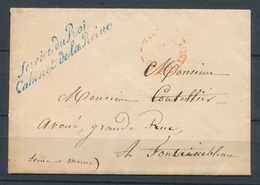 Service du Roi
Cabinet de la Reine
Monsieur
Monsieur
Avoué, grande Rue,
A Fontainebleau
Seine et Marne)